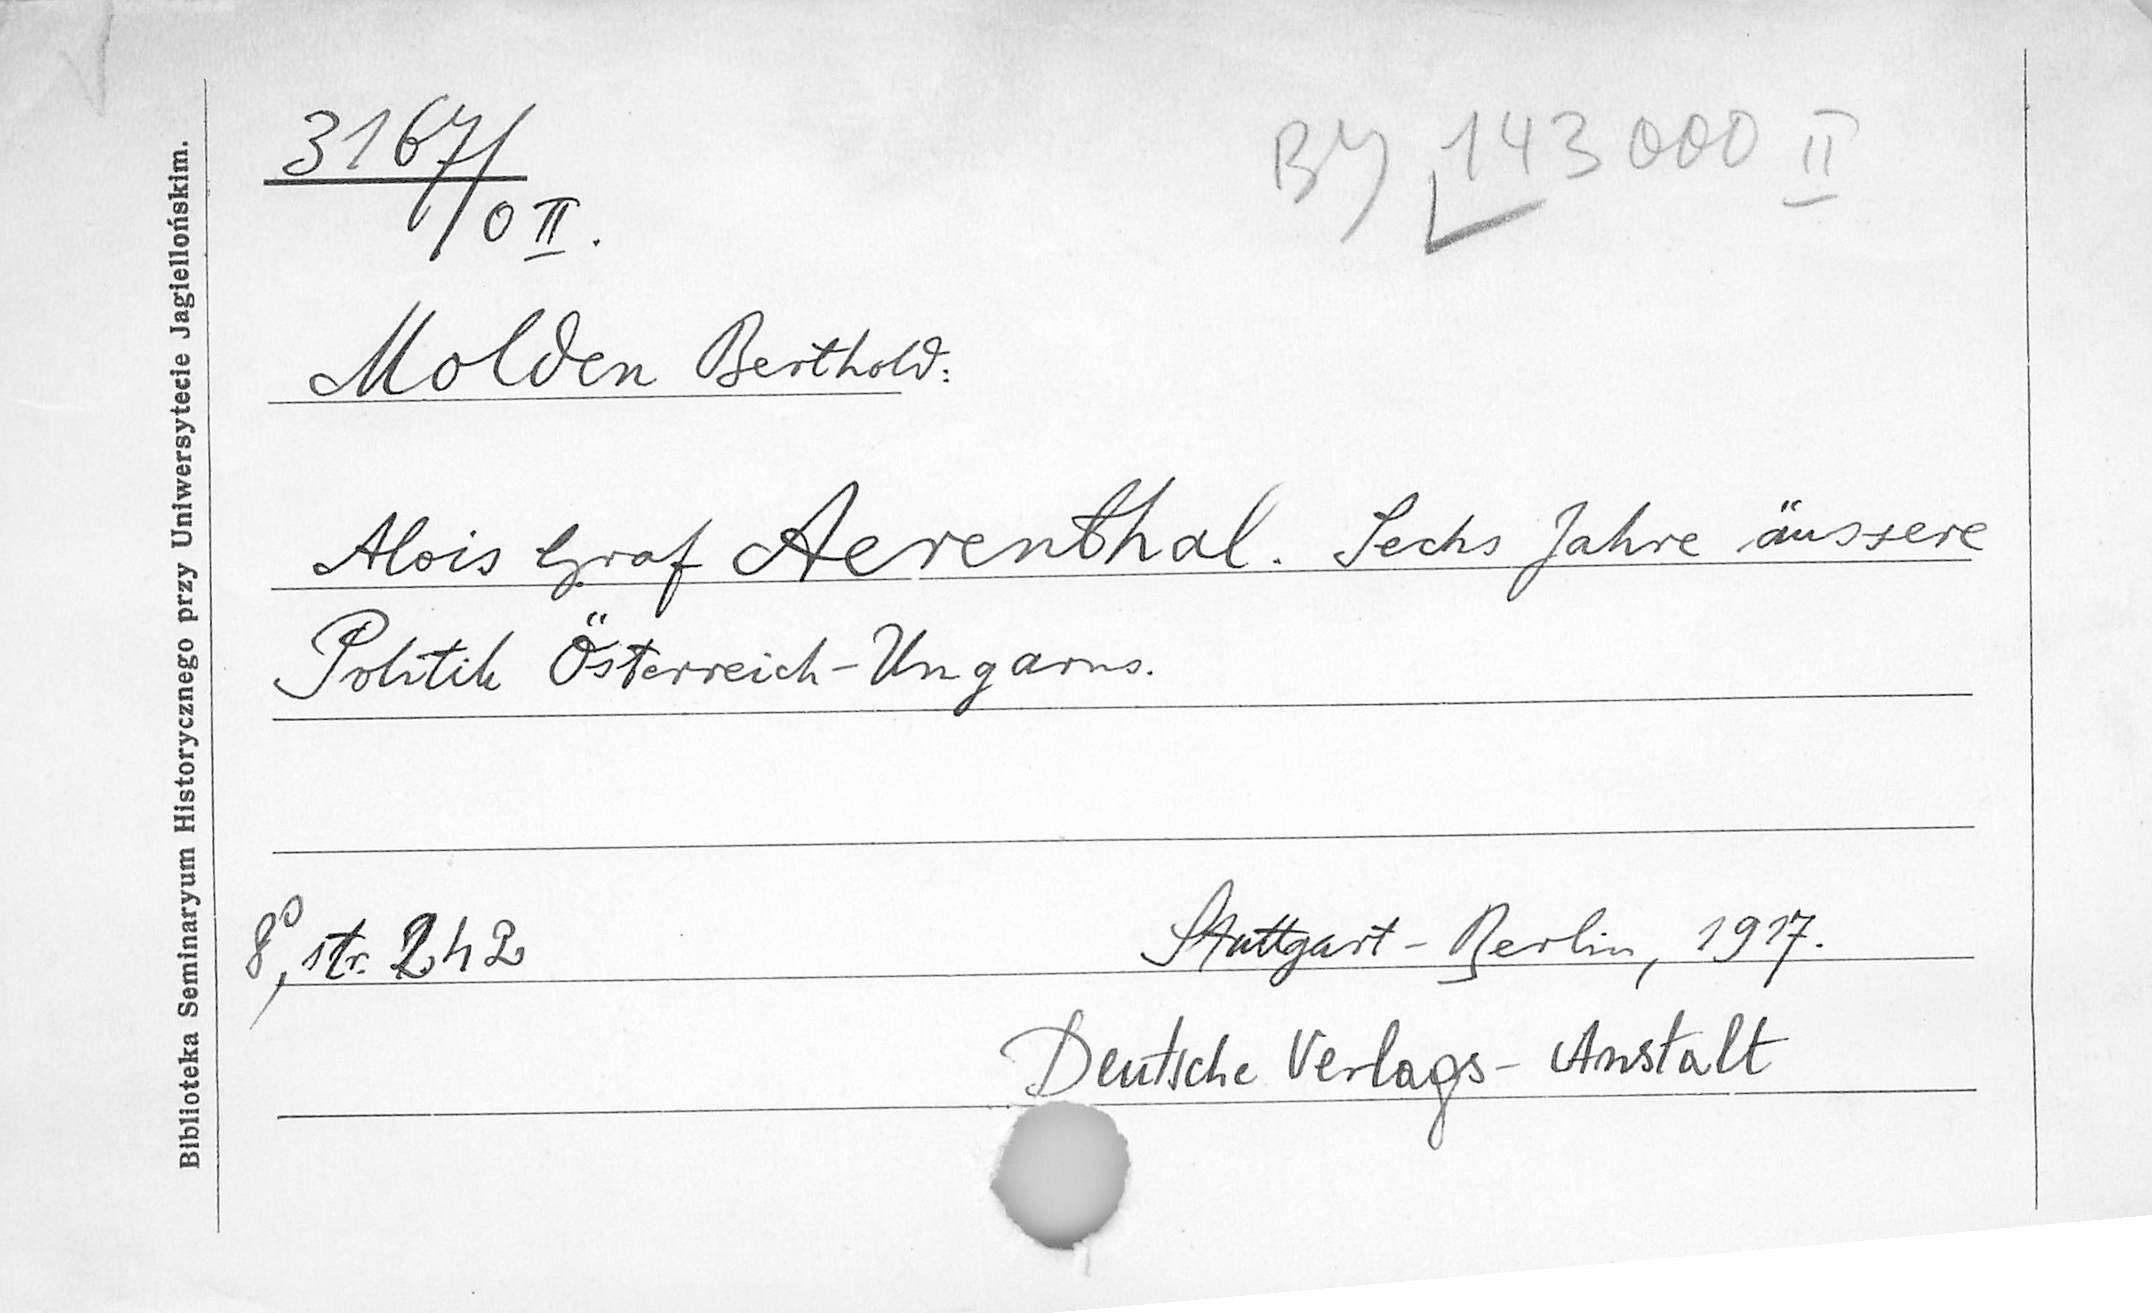 3167/
0 II.
BJ 143000 II
Molden Berthold:
Alois Graf Aerenthal. Sechs Jahre äussere
Politik Österreich-Ungarns.
8°, str. 242
Stuttgart - Berlin, 1917.
Deutsche Verlags- Anstalt
Biblioteka Seminaryum Historycznego przy Uniwersytecie Jagiellońskim.